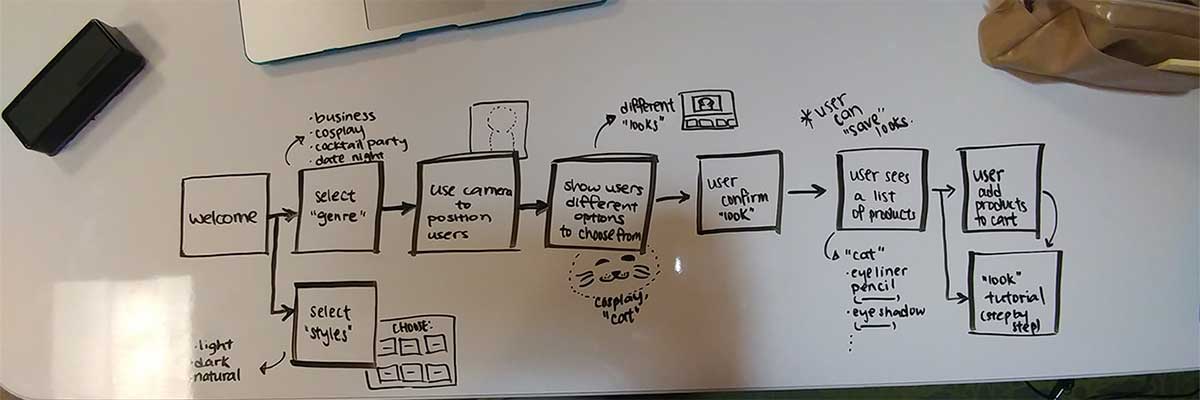 welcome
· business
· cosplay
· cocktail party
· date night
select
"genre"
select
"styles"
· light
· dark
· natural
CHOOSE:
use camera
to
position
users
different
"looks"
show users
different
options
to choose from
cosplay,
"cat"
user
confirm
"look"
* user
can
"save"
looks.
user sees
a list
of products
"cat"
· eyeliner
pencil
(____)
· eye shadow
(____)
user
add
products
to cart
"look"
tutorial
(step by
step)